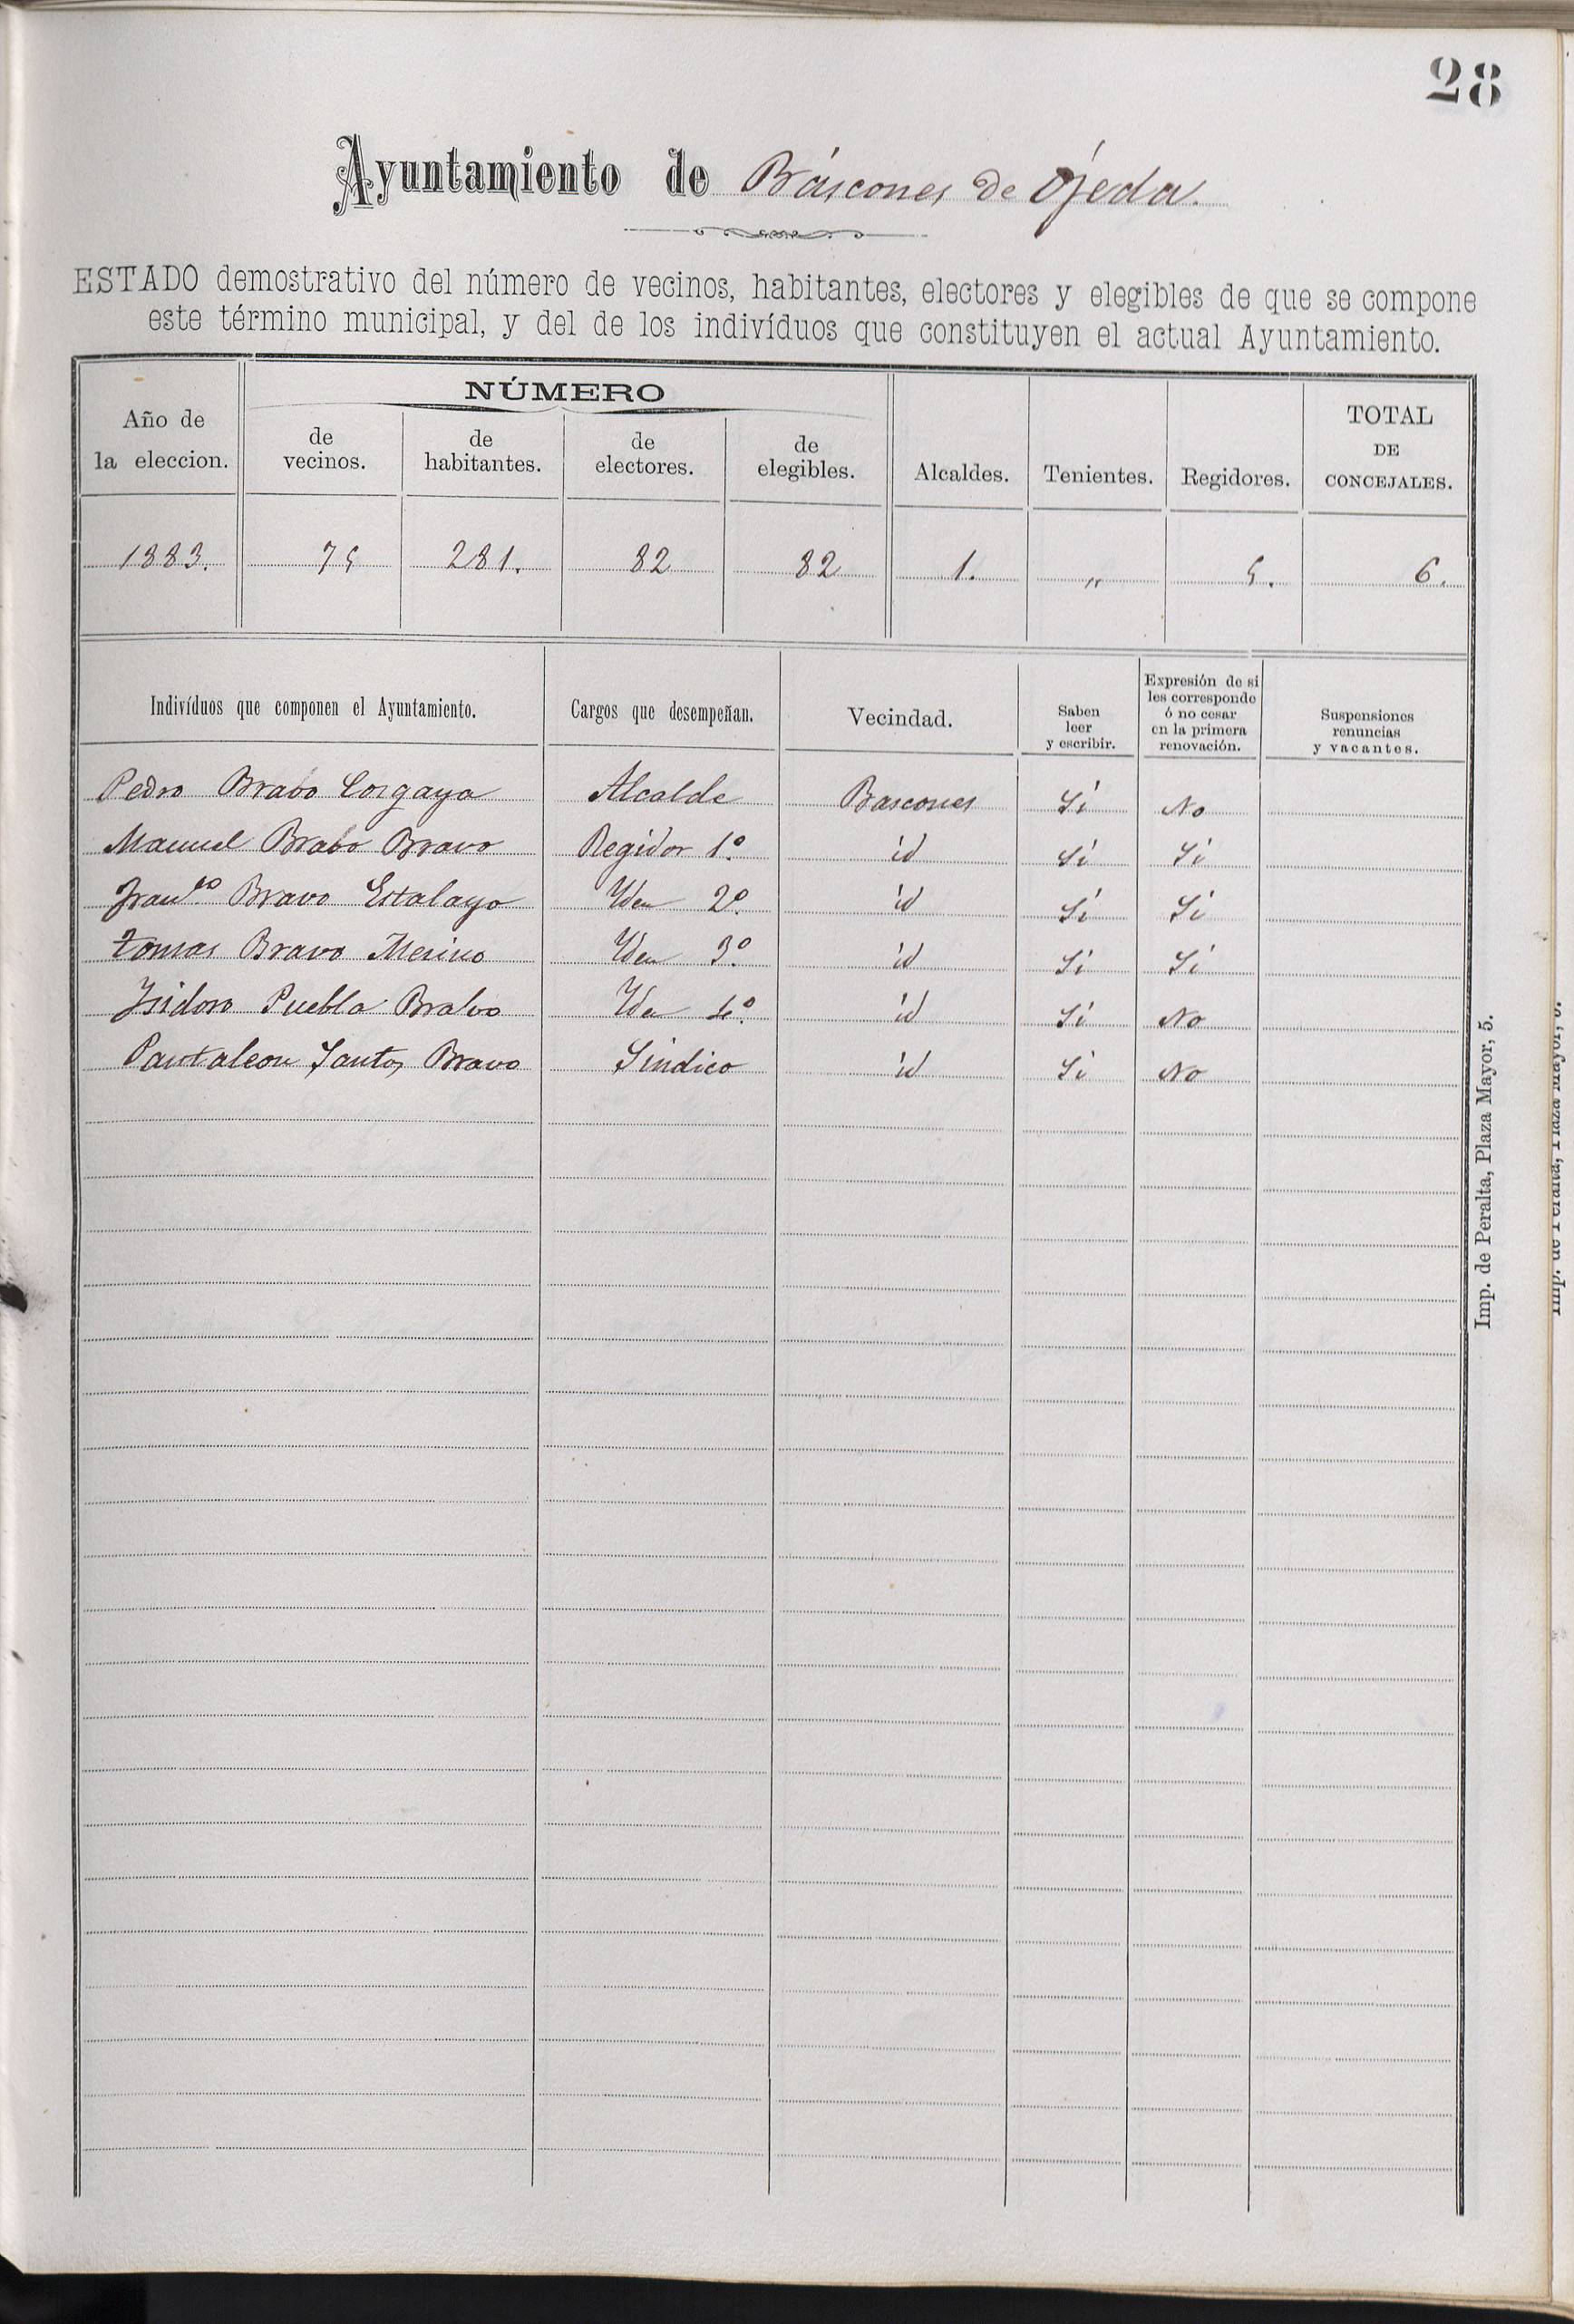 28
Ayuntamiento de Báscones de Ojeda.
ESTADO demostrativo del número de vecinos, habitantes, electores y elegibles de que se compone
este término municipal, y del de los indivíduos que constituyen el actual Ayuntamiento.
Año de la eleccion. NÚMERO de vecinos. de habitantes. de electores. de elegibles. Alcaldes. Tenientes. Regidores. TOTAL DE CONCEJALES.
1883. 75 281. 82 82 1. " 5. 6.
Indivíduos que componen el Ayuntamiento. Cargos que desempeñan. Vecindad. Saben leer y escribir. Expresión de si les corresponde ó no cesar en la primera renovación. Suspensiones renuncias y vacantes.
Pedro Brabo Corgaya Alcalde Bascones Si No
Manuel Brabo Bravo Regidor 1º. id Si Si
Franco Bravo Estalayo Iden 2º. id Si Si
tomas Bravo Merino Iden 3º. id Si Si
Isidoro Puebla Brabo Iden 4º. id Si No
Pantaleon Santos Bravo Sindico id Si No
Imp. de Peralta, Plaza Mayor, 5.
Imp. de Peralta, Plaza Mayor, 5.